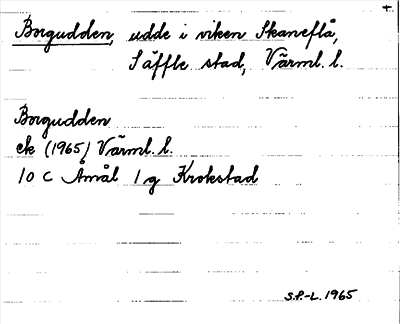 +
Borgudden, udde i viken Skaneflå,
Säffle stad, Värml. l.
Borgudden
ek (1965) Värml. l.
10 C Åmål 1 g Krokstad
S.P.-L. 1965